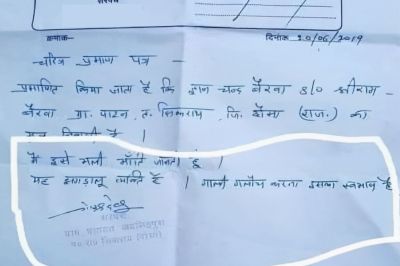 सरपंच
क्रमांक-
दिनांक 20/06/2019
चरित्र प्रमाण पत्र -
प्रमाणित किया जाता है कि ज्ञान चन्द बैरवा S/O श्रीराम-
बैरवा ग्रा. पाटन, त. सिकराय, जि. दौसा (राज.) का
निवासी है ।
मैं इसे भली भाँति जानता हूँ ।
यह झगड़ालू व्यक्ति है । गाली गलौच करना इसका स्वभाव है
सरपंच
ग्राम पंचायत